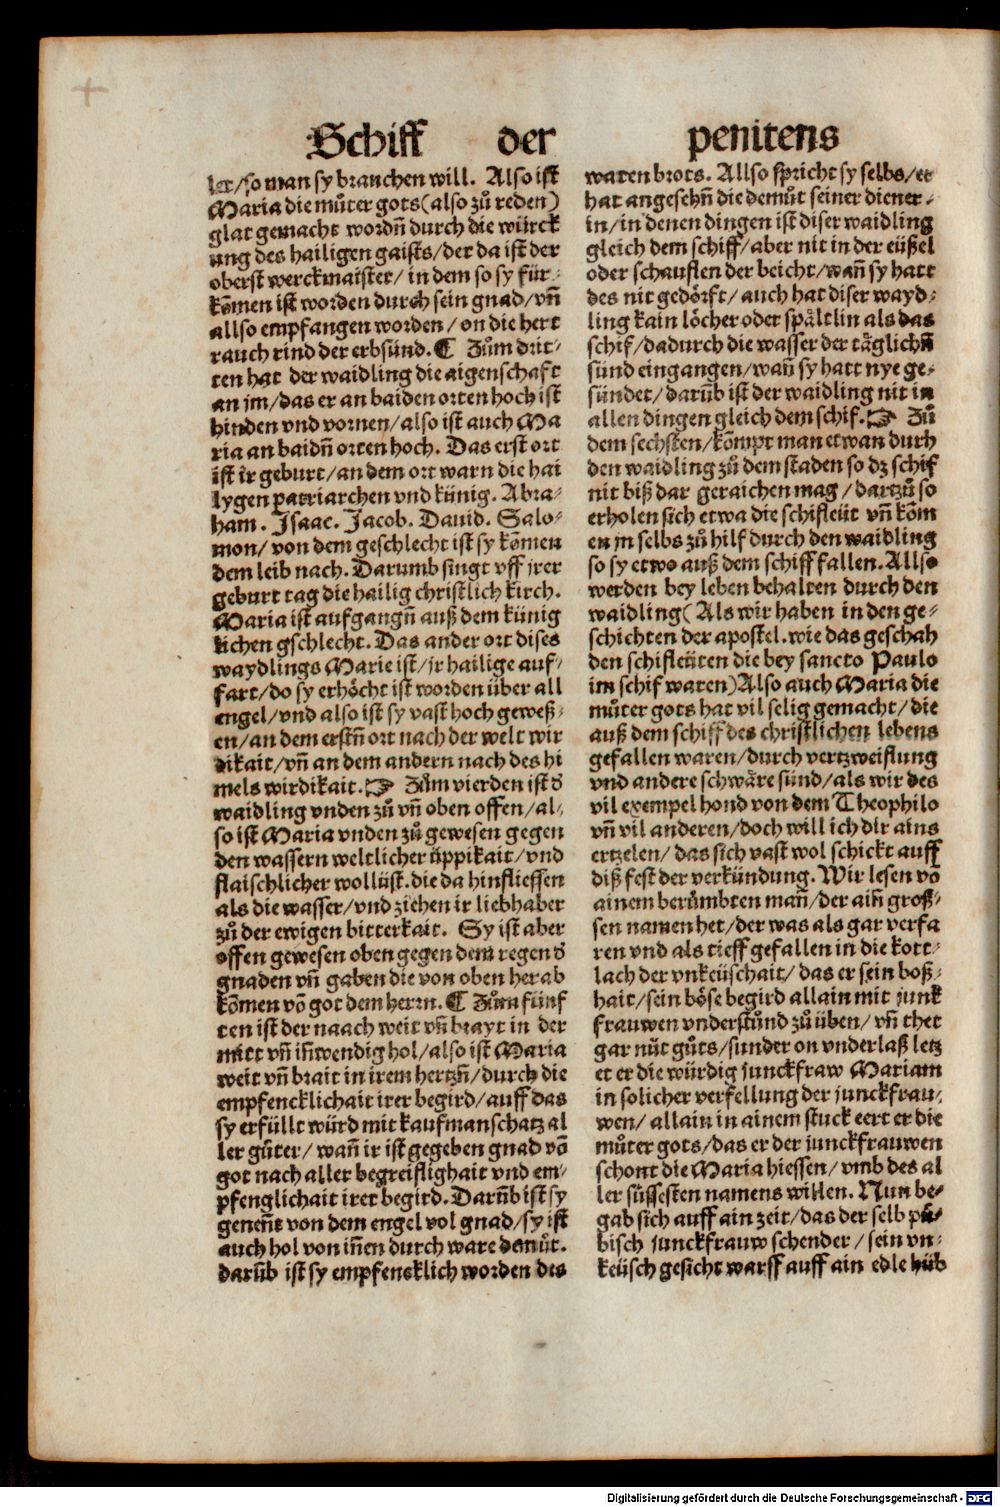 Schiff der penitens
let/so man sy brauchen will. Also ist
Maria die můter gots(also zů reden)
glat gemacht wordn̄ durch die würck
ung des hailigen gaists/der da ist der
oberst werckmaister/in dem so sy für-
kōmen ist worden durch sein gnad/vn̄
allso empfangen worden/on die hert
rauch rind der erbsünd.¶ Zům drit-
ten hat der waidling die aigenschaft
an jm/das er an baiden orten hoch ist
hinden vnd vornen/also ist auch Ma
ria an baidn̄ orten hoch. Das erst ort
ist ir geburt/an dem ort warn die hai
lygen patriarchen vnd künig. Abra-
ham. Isaac. Jacob. Dauid. Salo-
mon/von dem geschlecht ist sy kōmen
dem leib nach. Darumb singt vff jrer
geburt tag die hailig christlich kirch.
Maria ist aufgangn̄ auß dem künig
lichen gschlecht. Das ander ort dises
waydlings Marie ist/jr hailige auf-
fart/do sy erhöcht ist worden über all
engel/vnd also ist sy vast hoch geweß-
en/an dem erstn̄ ort nach der welt wir
dikait/vn̄ an dem andern nach des hi
mels wirdikait.☞ Zům vierden ist d̕
waidling vnden zů vn̄ oben offen/al-
so ist Maria vnden zů gewesen gegen
den wassern weltlicher üppikait/vnd
flaischlicher wollüst.die da hinfliessen
als die wasser/vnd ziehen ir liebhaber
zů der ewigen bitterkait. Sy ist aber
offen gewesen oben gegen dem regen d̕
gnaden vn̄ gaben die von oben herab
kōmen vō got dem herrn.¶ Zům fünf
ten ist der naach weit vn̄ brayt in der
mitt vn̄ in̄wendig hol/also ist Maria
weit vn̄ brait in irem hertzn̄/durch die
empfencklichait irer begird/auff das
sy erfüllt würd mit kaufmanschatz al
ler gůter/wan̄ ir ist gegeben gnad vō
got nach aller begreiflighait vnd em-
pfenglichait irer begird. Darūb ist sy
genen̄t von dem engel vol gnad/sy ist
auch hol von in̄en durch ware demůt.
darūb ist sy empfencklich worden des
waren brots. Allso spricht sy selbs/er
hat angesehn̄ die demůt seiner diener-
in/in denen dingen ist diser waidling
gleich dem schiff/aber nit in der eüßel
oder schauflen der beicht/wan̄ sy hatt
des nit gedörft/auch hat diser wayd-
ling kain löcher oder spältlin als das
schif/dadurch die wasser der täglichn̄
sünd eingangen/wan̄ sy hatt nye ge-
sündet/darūb ist der waidling nit in
allen dingen gleich dem schif.☞ Zů
dem sechsten/kōmpt man etwan durh
den waidling zů dem staden so dz schif
nit biß dar geraichen mag/dartzů so
erholen sich etwa die schifleüt vn̄ kōm
en jn selbs zů hilf durch den waidling
so sy etwo auß dem schiff fallen. Allso
werden bey leben behalten durch den
waidling(Als wir haben in den ge-
schichten der apostel.wie das geschah
den schifleüten die bey sancto Paulo
im schif waren)Also auch Maria die
můter gots hat vil selig gemacht/die
auß dem schiff des christlichen lebens
gefallen waren/durch vertzweiflung
vnd andere schwäre sünd/als wir des
vil exempel hond von dem Theophilo
vn̄ vil anderen/doch will ich dir ains
ertzelen/das sich vast wol schickt auff
diß fest der verkündung. Wir lesen vō
ainem berůmbten man̄/der ain̄ groß-
sen namen het/der was als gar verfa
ren vnd als tieff gefallen in die kott-
lach der vnkeüschait/das er sein boß-
hait/sein böse begird allain mit junk
frauwen vnderstůnd zů üben/vn̄ thet
gar nüt gůts/sunder on vnderlaß letz
et er die würdig junckfraw Mariam
in solicher verfellung der junckfrau-
wen/allain in ainem stuck eert er die
můter gots/das er der junckfrauwen
schont die Maria hiessen/vmb des al
ler süssesten namens willen. Nun be-
gab sich auff ain zeit/das der selb pü-
bisch junckfrauw schender/sein vn-
keüsch gesicht warff auff ain edle hüb
Digitalisierung gefördert durch die Deutsche Forschungsgemeinschaft - DFG